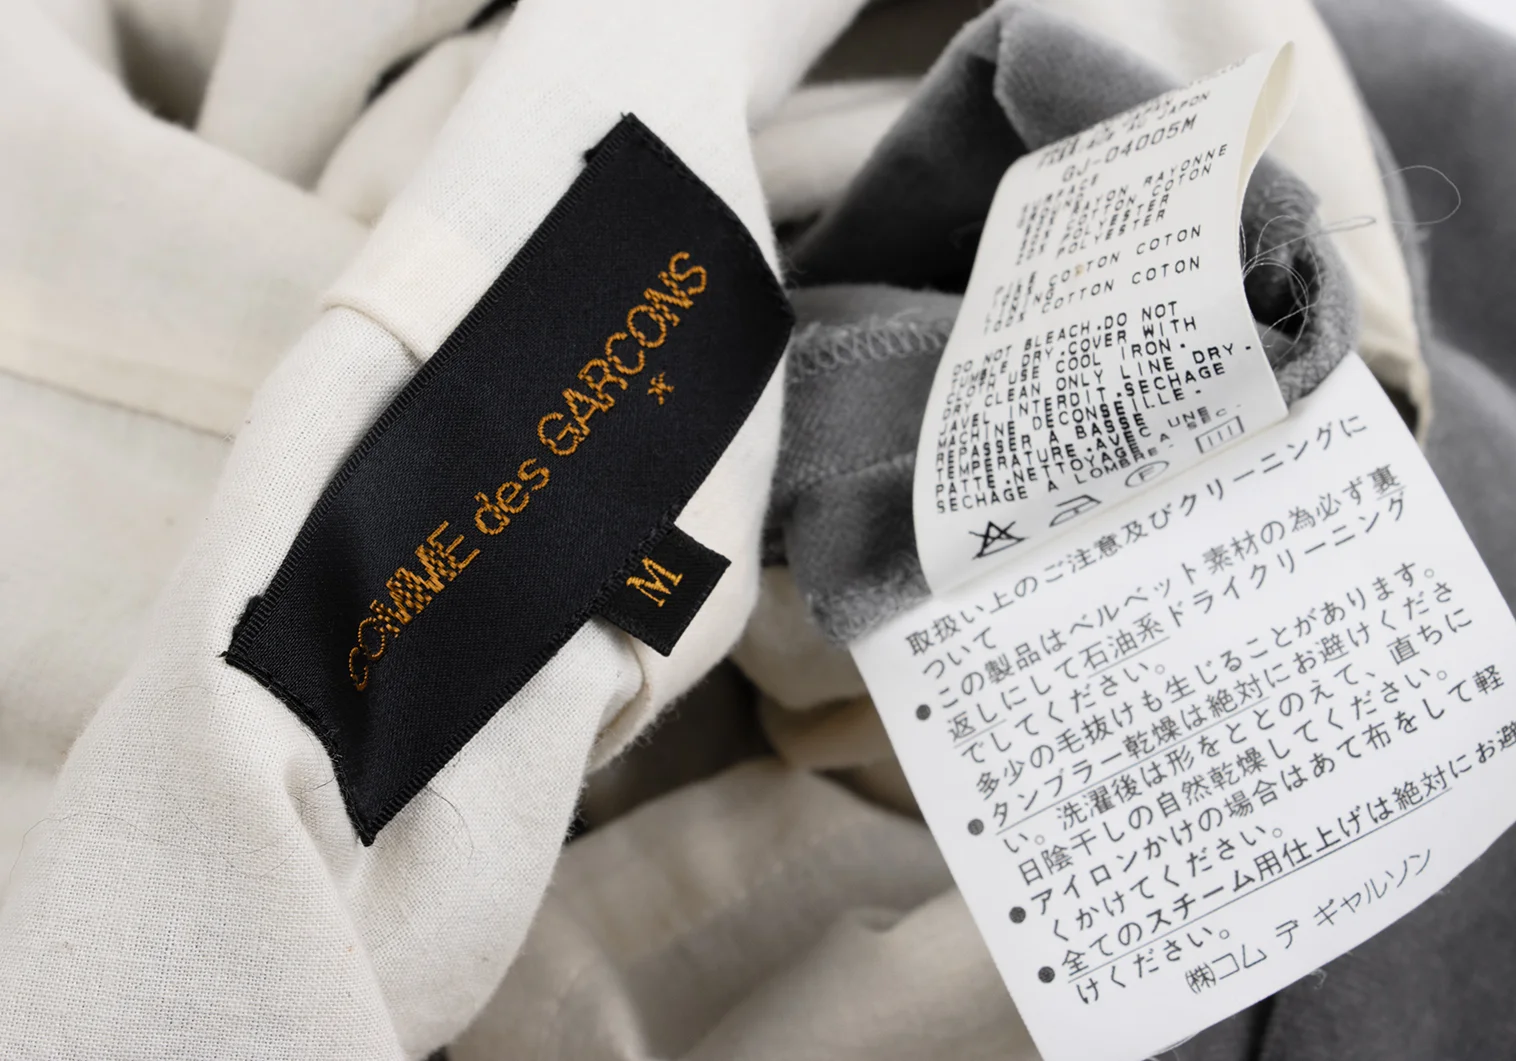 COMME des GARCONS
*
M
AU JAPON
GJ-04005M
SURFACE
RAYON RAYONNE
COTTON COTON
POLYESTER
POLYESTER
PILE COTTON COTON
COTTON COTON
DO NOT BLEACH.DO NOT
TUMBLE DRY.COVER WITH
CLOTH USE COOL IRON.
DRY CLEAN ONLY LINE DRY.
JAVEL INTERDIT.SECHAGE
MACHINE DECONSEILLE.
REPASSER A BASSE
TEMPERATURE.AVEC UNE
PATTE.NETTOYAGE
SECHAGE A L'OMBRE.
F
取扱い上のご注意及びクリーニングに
ついて
●この製品はベルベット素材の為必ず裏
返しにして石油系ドライクリーニング
でしてください。
多少の毛抜けも生じることがあります。
●タンブラー乾燥は絶対にお避けくださ
い。洗濯後は形をととのえて、直ちに
日陰干しの自然乾燥してください。
●アイロンかけの場合はあて布をして軽
くかけてください。
●全てのスチーム用仕上げは絶対にお避
けください。
㈱コム デ ギャルソン